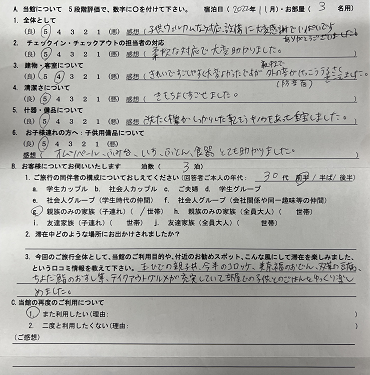 A. 当館について 5段階評価で、数字に○を付けて下さい。 宿泊日(2022年/1月)・お部屋( 3 名用)
1. 全体として
(良) 5 4 3 2 1 (悪) 感想(子供
ありがとうございました
2. チェックイン・チェックアウトの担当者の対応
(良) 5 4 3 2 1 (悪) 感想( な対応で大変助かりました。
3. 建物・客室について
(良) 5 4 3 2 1 (悪) 感想(きれいですごく
4. 清潔さについて
(良) 5 4 3 2 1 (悪) 感想(きもちよくすごせました。
5. 什器・備品について
(良) 5 4 3 2 1 (悪) 感想(
6. お子様連れの方へ:子供用備品について
(良) 5 4 3 2 1 (悪)
感想( オムツペール、ふみ台、いす、ふとん、食器 とても助かりました。
B. お客様についてお伺いいたします 泊数( 3 泊)
1. ご旅行の同伴者の構成についておしえてください(回答者ご本人の年代: 30 代 前半/半ば/後半)
a. 学生カップル b. 社会人カップル c. ご夫婦 d. 学生グループ
e. 社会人グループ(学生時代の仲間) f. 社会人グループ(会社関係や同一趣味等の仲間)
g. 親族のみの家族(子連れ)( /世帯) h. 親族のみの家族(全員大人)( 世帯)
i. 友達家族(子連れ)( 世帯) j. 友達家族(全員大人)( 世帯)
2. 滞在中どのような場所にお出かけされましたか?
3. 今回のご旅行全体として、当館のご利用目的や、付近のお勧めスポット、こんな風にして滞在を楽しみました、
という口コミ情報を教えて下さい。
テイクアウトグルメが充実していて部屋で子供とのごはんもゆっくり楽し
めました。
C. 当館の再度のご利用について
1. また利用したい(理由: )
2. 二度と利用したくない(理由: )
(ご感想)